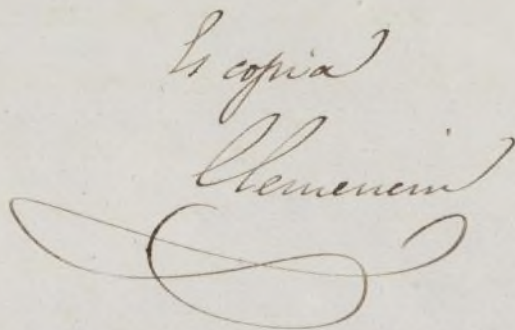 Es copia
Clemencin